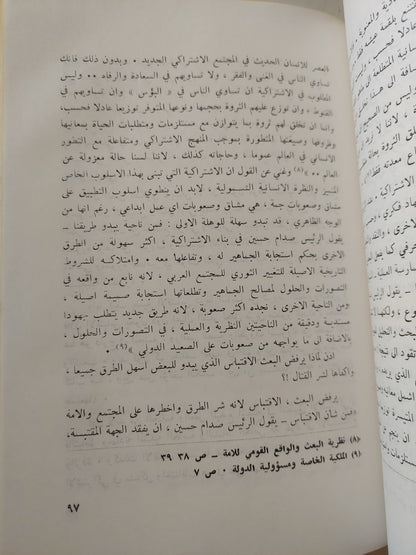 العصر للانسان الحديث في المجتمع الاشتراكي الجديد . وبدون ذلك فانك
تساوي الناس في الغنى والفقر ، ولا تساويهم في السعادة والرفاه .. وليس
المطلوب في الاشتراكية ان تساوي الناس في « البؤس » وان تساويهم في
القنوط ، وان توزع عليهم الثروة بحجمها ونوعها المتوفر توزيعا عادلا فحسب،
وانما ان تخلق لهم ثروة بما يتوازن مع مستلزمات ومتطلبات الحياة بمعانيها
وظروفها وصيغتها المتطورة بموجب المنهج الاشتراكي ومتفاعلة مع التطور
الانساني في العالم عموما ، وحاجاته كذلك ، لاننا لسنا حالة معزولة عن
العالم .. »(٨) وغني عن القول ان الاشتراكية التي تبنى بهذا الاسلوب الخاص
المتميز والنظرة الانسانية الشمولية ، لابد ان ينطوي اسلوب التطبيق على
مشاق وصعوبات جمة ، هي مشاق وصعوبات اي عمل ابداعي ، رغم انها من
الوجه الظاهري ، قد تبدو سهلة للوهلة الاولى : فمن ناحية يبدو طريقنا –
يقول الرئيس صدام حسين في بناء الاشتراكية ، اكثر سهولة من الطرق
الاخرى بحكم استجابة الجماهير له ، وتفاعلها معه . وامتلاكه للشروط
التاريخية الاصيلة للتغيير الثوري للمجتمع العربي ، لانه نابع من واقعه في
التصورات والحلول لمصالح الجماهير وتطلعاتها استجابة صميمية اصيلة ،
ومن الناحية الاخرى ، نجده اكثر صعوبة ، لانه طريق جديد يتطلب جهودا
ودقيقة من الناحيتين النظرية والعملية ، في التصورات والحلول ،
بالاضافة الى ما يواجهه من صعوبات على الصعيد الدولي »(٩) .
اذن لماذا يرفض البعث الاقتباس الذي يبدو للبعض أسهل الطرق جميعا ،
واكفاها لشر القتال ؟!
يرفض البعث ، الاقتباس لانه شر الطرق واخطرها على المجتمع والامة
فمن شأن الاقتباس – يقول الرئيس صدام حسين ، ان يفقد الجهة المقتبسة،
(٨) نظرية البعث والواقع القومي للامة – ص ٣٨ ٣٩
(٩) الملكية الخاصة ومسؤولية الدولة . ص ٧
٩٧